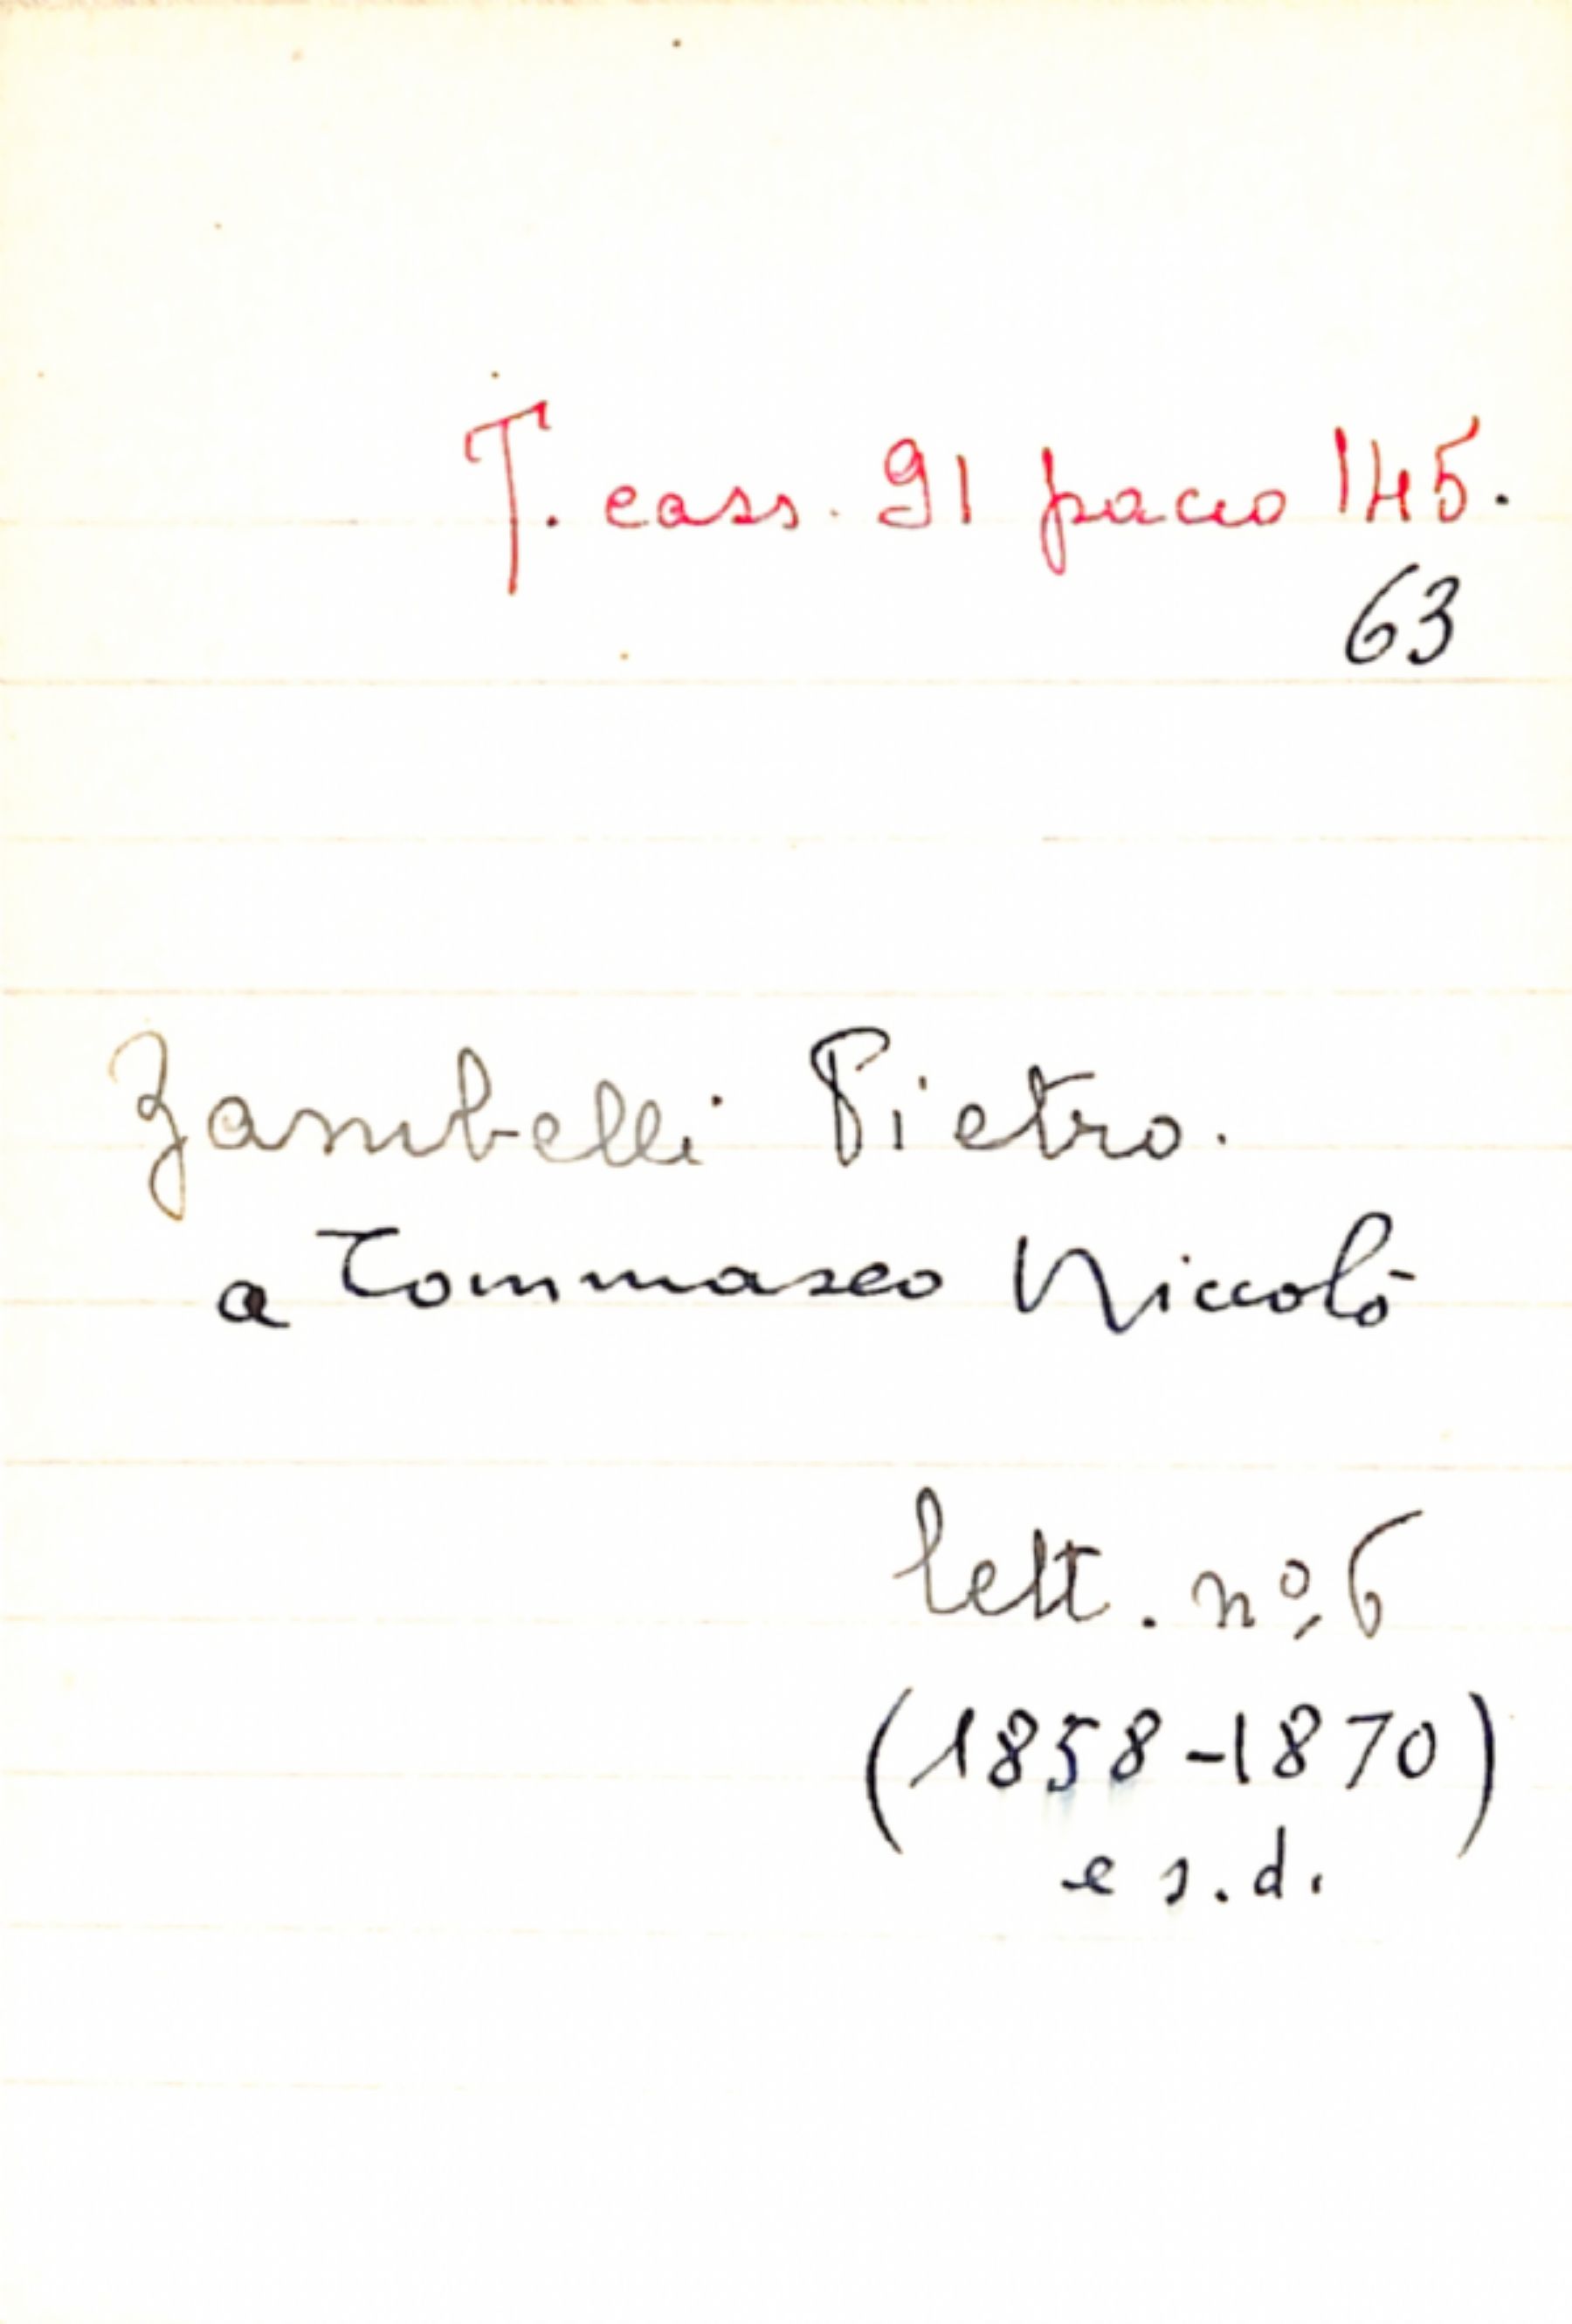 T. cass. 91 pacco 145.
63
Zambelli Pietro.
a Tommaseo Niccolò
lett. nº. 6
(1858-1870)
e s.d.